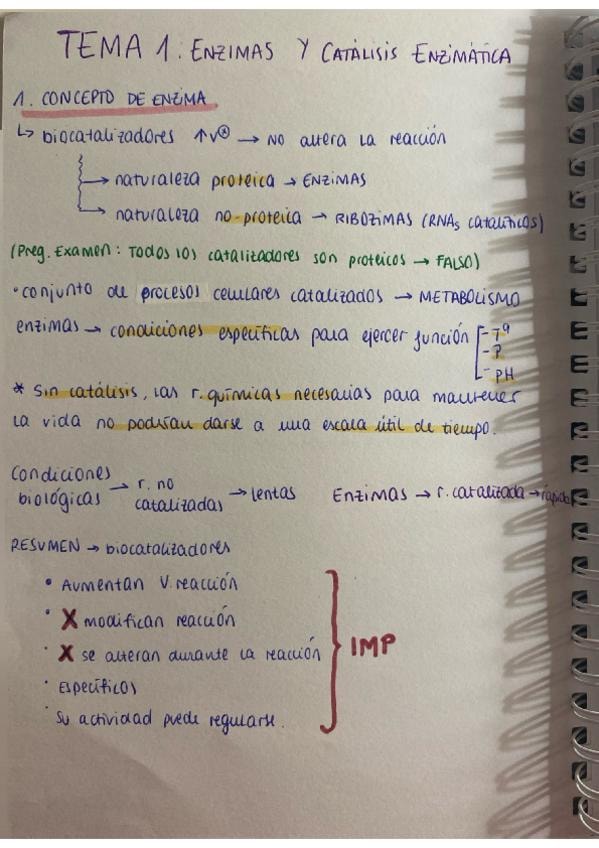 TEMA 1: ENZIMAS Y CATÁLISIS ENZIMÁTICA
1. CONCEPTO DE ENZIMA
↳ biocatalizadores ↑v⊛ → NO altera la reacción
→ naturaleza proteica → ENZIMAS
→ naturaleza no-proteica → RIBOZIMAS (RNAs catalíticos)
(Preg. Examen: Todos los catalizadores son proteicos → FALSO)
• conjunto de procesos celulares catalizados → METABOLISMO
enzimas → condiciones específicas para ejercer función - Tª
- P
- PH
* Sin catálisis, las r. químicas necesarias para mantener
la vida no podrían darse a una escala útil de tiempo.
Condiciones biológicas → r. no catalizadas → lentas Enzimas → r. catalizada → rápida
RESUMEN → biocatalizadores
• Aumentan V. reacción
• X modifican reacción
• X se alteran durante la reacción
• Específicos
• Su actividad puede regularse.
IMP